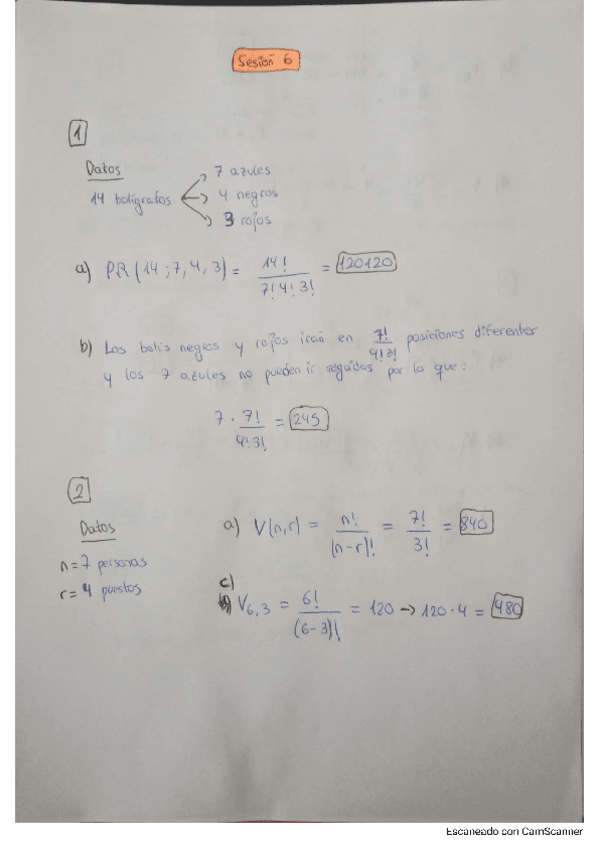 Sesión 6
1
Datos
14 bolígrafos
7 azules
4 negros
3 rojos
a) PR(14;7,4,3) = 14! / 7! 4! 3! = 120120
b) Los bolis negros y rojos irán en 7! / 4!3! posiciones diferentes
y los 7 azules no pueden ir seguidos por lo que:
7 · 7! / 4!3! = 245
2
Datos
n = 7 personas
r = 4 puestos
a) V(n,r) = n! / (n-r)! = 7! / 3! = 840
c)
V6,3 = 6! / (6-3)! = 120 → 120 · 4 = 480
Escaneado con CamScanner